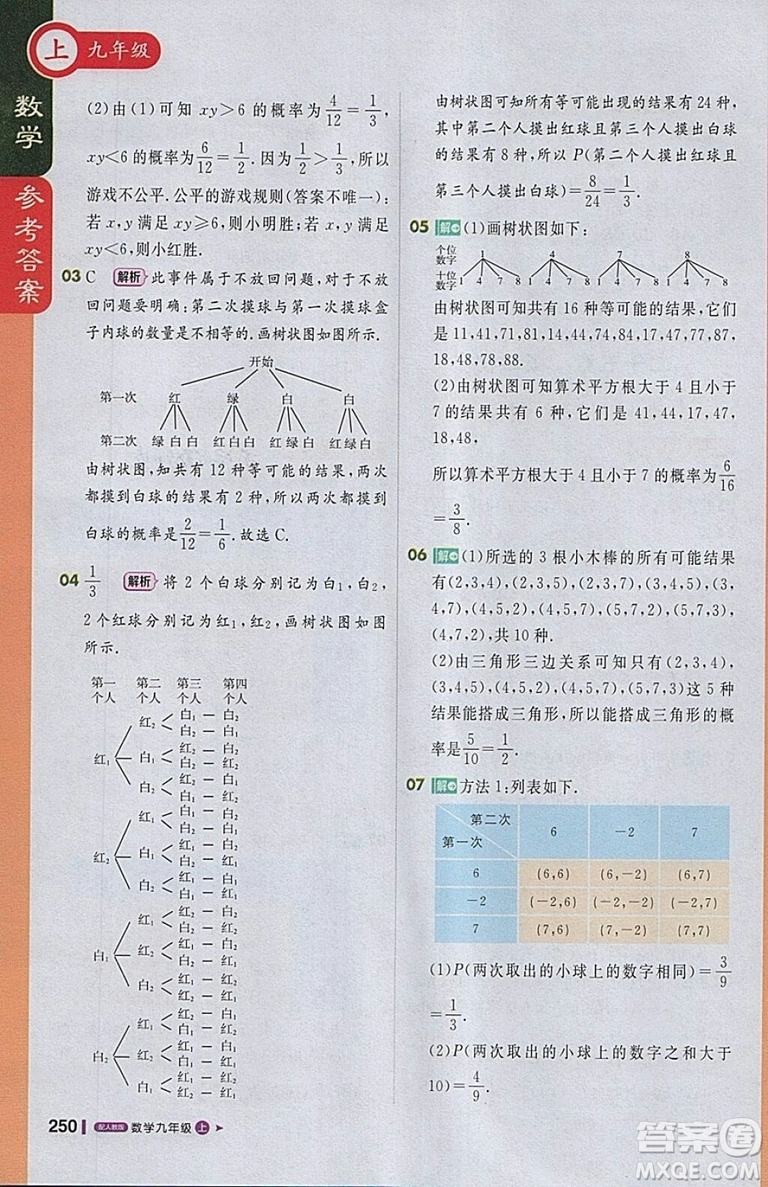 上 九年级
数学
参考答案
(2)由(1)可知 xy>6 的概率为4/12=1/3,
xy<6 的概率为6/12=1/2. 因为1/3<1/2,所以
游戏不公平. 公平的游戏规则(答案不唯一):
若 x,y 满足 xy≥6,则小明胜;若 x,y 满足
xy<6,则小红胜.
03 C 解析 此事件属于不放回问题,对于不放
回问题要明确:第二次摸球与第一次摸球盒
子内球的数量是不相等的. 画树状图如图所示.
开始
第一次 红 绿 白 白
第二次 绿 白 白 红 白 白 红 绿 白 红 绿 白
由树状图,知共有 12 种等可能的结果,两次
都摸到白球的结果有 2 种,所以两次都摸到
白球的概率是2/12=1/6. 故选 C.
04 1/3 解析 将 2 个白球分别记为白₁,白₂,
2 个红球分别记为红₁,红₂,画树状图如图
所示.
第一个人 第二个人 第三个人 第四个人
红₁
红₂ 白₁—白₂
白₂—白₁
白₁ 红₂—白₂
白₂—红₂
白₂ 红₂—白₁
白₁—红₂
红₂
红₁ 白₁—白₂
白₂—白₁
白₁ 红₁—白₂
白₂—红₁
白₂ 红₁—白₁
白₁—红₁
白₁
红₁ 红₂—白₂
白₂—红₂
红₂ 红₁—白₂
白₂—红₁
白₂ 红₁—红₂
红₂—红₁
白₂
红₁ 红₂—白₁
白₁—红₂
红₂ 红₁—白₁
白₁—红₁
白₁ 红₁—红₂
红₂—红₁
250 配人教版 数学九年级 上
由树状图可知所有等可能出现的结果有 24 种,
其中第二个人摸出红球且第三个人摸出白球
的结果有 8 种,所以 P(第二个人摸出红球且
第三个人摸出白球)=8/24=1/3.
05 解 (1)画树状图如下:
个位数字 1 4 7 8
十位数字 1 4 7 8 1 4 7 8 1 4 7 8 1 4 7 8
由树状图可知共有 16 种等可能的结果,它们
是 11,41,71,81,14,44,74,84,17,47,77,87,
18,48,78,88.
(2)由树状图可知算术平方根大于 4 且小于
7 的结果共有 6 种,它们是 41,44,17,47,
18,48,
所以算术平方根大于 4 且小于 7 的概率为6/16
=3/8.
06 解 (1)所选的 3 根小木棒的所有可能结果
有(2,3,4),(2,3,5),(2,3,7),(3,4,5),(3,
4,7),(4,5,2),(4,5,7),(5,7,2),(5,7,3),
(4,7,2),共 10 种.
(2)由三角形三边关系可知只有(2,3,4),
(3,4,5),(4,5,2),(4,5,7),(5,7,3)这 5 种
结果能搭成三角形,所以能搭成三角形的概
率是5/10=1/2.
07 解 方法 1:列表如下.
第一次 第二次 6 -2 7
6 (6,6) (6,-2) (6,7)
-2 (-2,6) (-2,-2) (-2,7)
7 (7,6) (7,-2) (7,7)
(1)P(两次取出的小球上的数字相同)=3/9
=1/3.
(2)P(两次取出的小球上的数字之和大于
10)=4/9.
答案圈
MXQE.COM